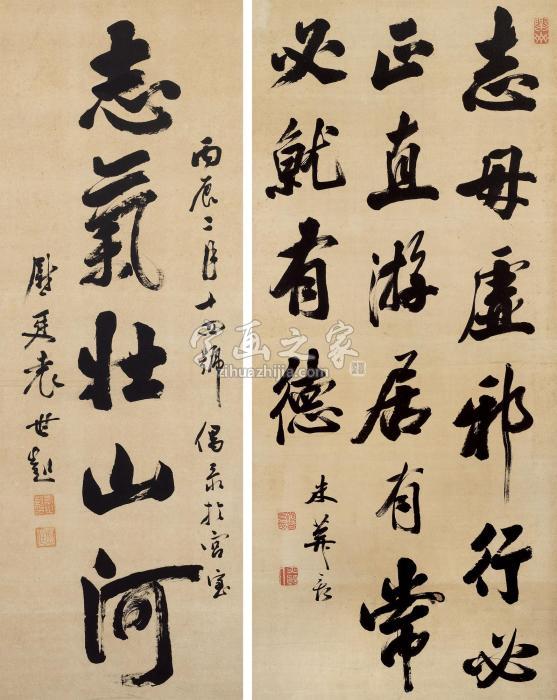 志毋虚邪行必
正直游居有常
必就有德
朱葬辰
志氣壮山河
丙辰二月十四號 偶录於宫室
慰廷袁世凱
字画之家
zihuazhijia.com